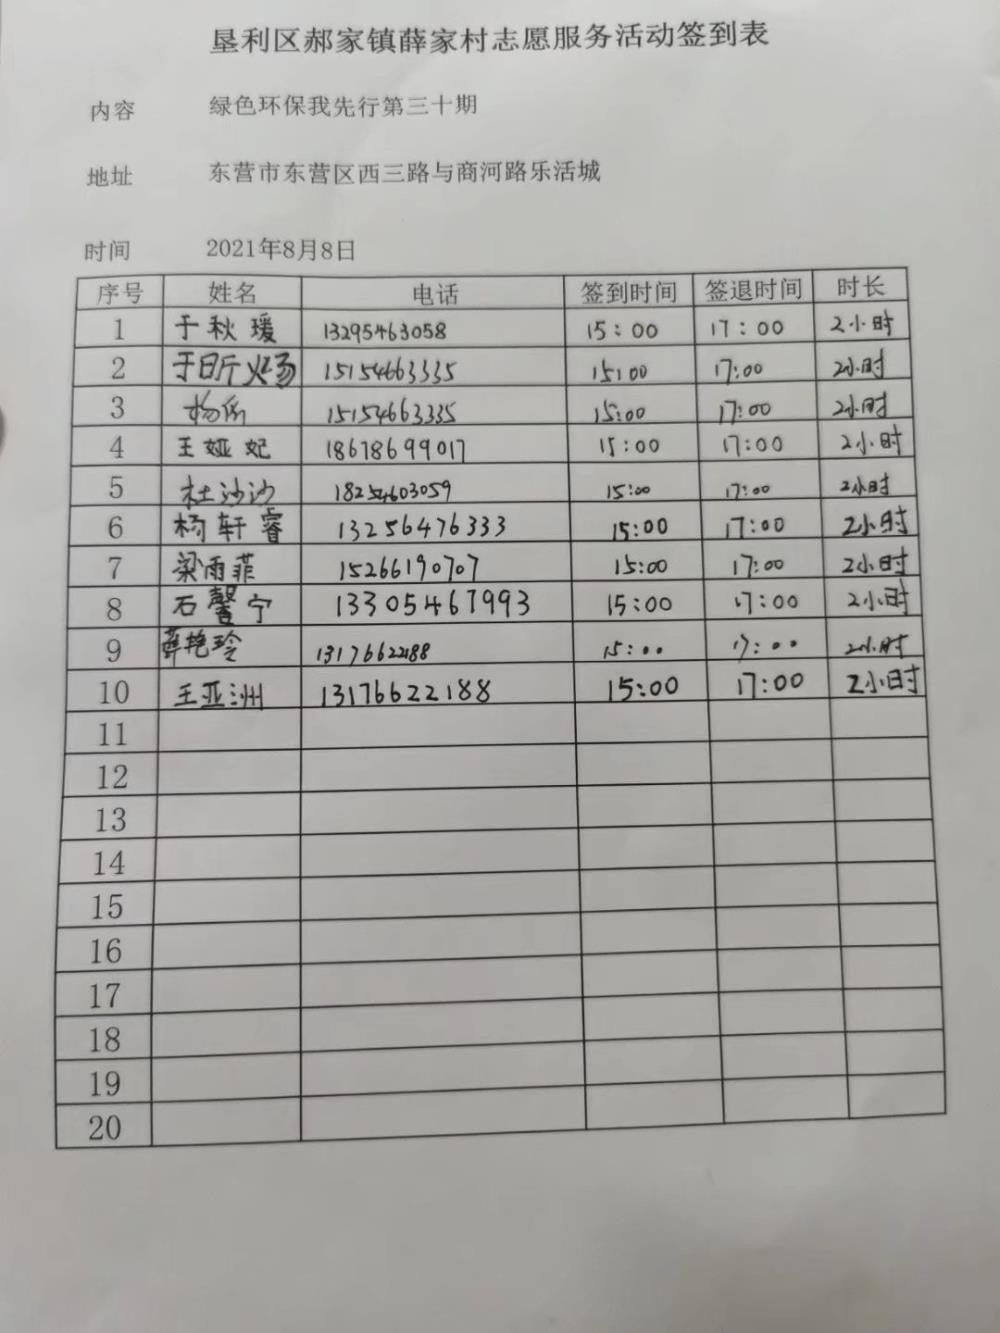 垦利区郝家镇薛家村志愿服务活动签到表
内容 绿色环保我先行第三十期
地址 东营市东营区西三路与商河路乐活城
时间 2021年8月8日
序号 姓名 电话 签到时间 签退时间 时长
1 于秋瑗 13295463058 15:00 17:00 2小时
2 于昕炀 15154663335 15:00 17:00 2小时
3 杨 15154663335 15:00 17:00 2小时
4 王娅妃 18678699017 15:00 17:00 2小时
5 杜沙沙 18254603059 15:00 17:00 2小时
6 杨轩睿 13256476333 15:00 17:00 2小时
7 梁雨菲 15266190707 15:00 17:00 2小时
8 石馨宁 13305467993 15:00 17:00 2小时
9 薛艳玲 13176622188 15:00 17:00 2小时
10 王亚洲 13176622188 15:00 17:00 2小时
11
12
13
14
15
16
17
18
19
20